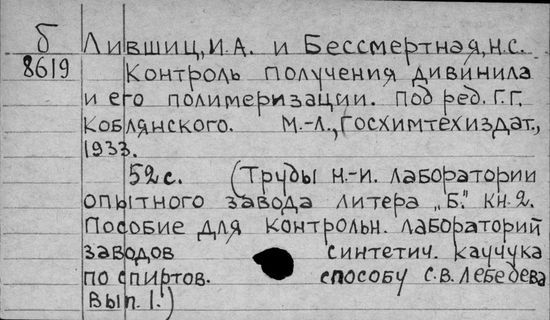 б Лившиц, И.А. и Бессмертная, Н.С.
8619 Контроль получения дивинила
и его полимеризации. Под ред. Г.Г.
Коблянского. М.-Л., Госхимтехиздат.,
1933.
52 с. (Труды н.-и. лаборатории
опытного завода литера „Б." кн. 2.
Пособие для контрольн. лабораторий
заводов синтетич. каучука
по спиртов. способу С.В. Лебедева
вып. 1.)